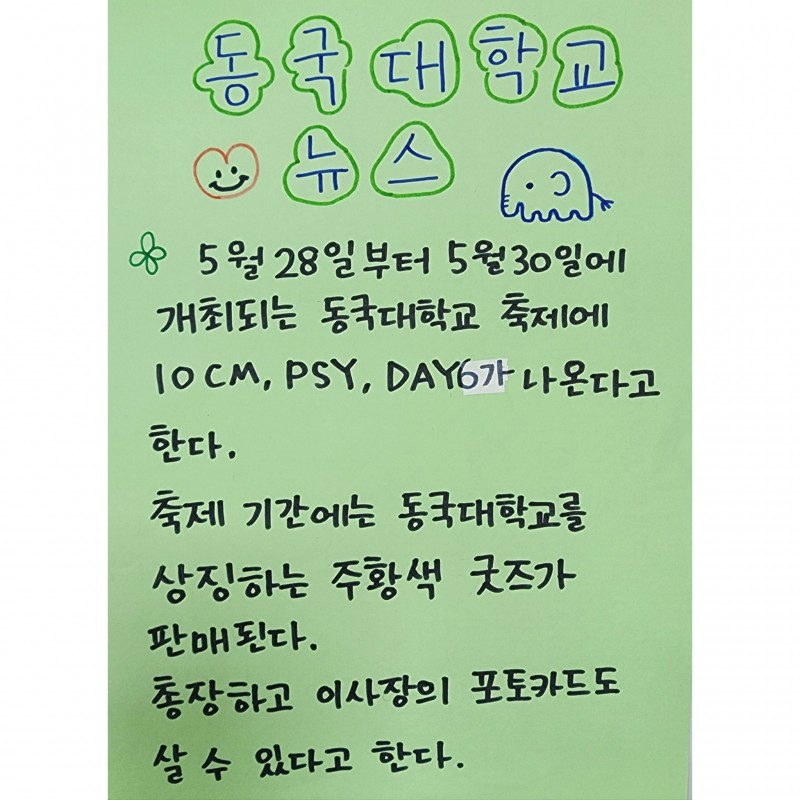 동국대학교
뉴스
5월 28일부터 5월 30일에
개최되는 동국대학교 축제에
10CM, PSY, DAY6가 나온다고
한다.
축제 기간에는 동국대학교를
상징하는 주황색 굿즈가
판매된다.
총장하고 이사장의 포토카드도
살 수 있다고 한다.